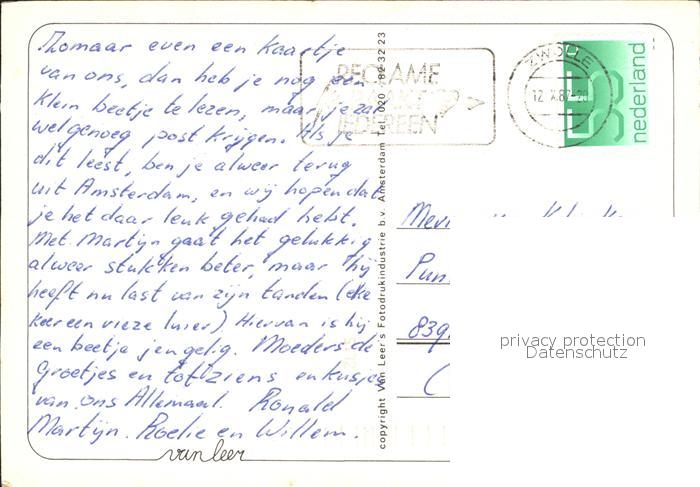 Zomaar even een kaartje
van ons, dan heb je nog een
klein beetje te lezen, maar je zal
wel genoeg post krijgen. Als je
dit leest, ben je alweer terug
uit Amsterdam, en wij hopen dat
je het daar leuk gehad hebt.
Met Martijn gaat het gelukkig
alweer stukken beter, maar hij
heeft nu last van zijn tanden (elke
keer een vieze luier) Hiervan is hij
een beetje jengelig. Moeders de
Groetjes en tot ziens en kusjes
van ons Allemaal. Ronald
Martijn. Roelie en Willem.
van leer
copyright Van Leer's Fotodrukindustrie b.v. Amsterdam Tel. 020
RECLAME
MAAKT
IEDEREEN
ZWOLLE
12 X.8
55
nederland
Mev
Pun
839
privacy protection
Datenschutz